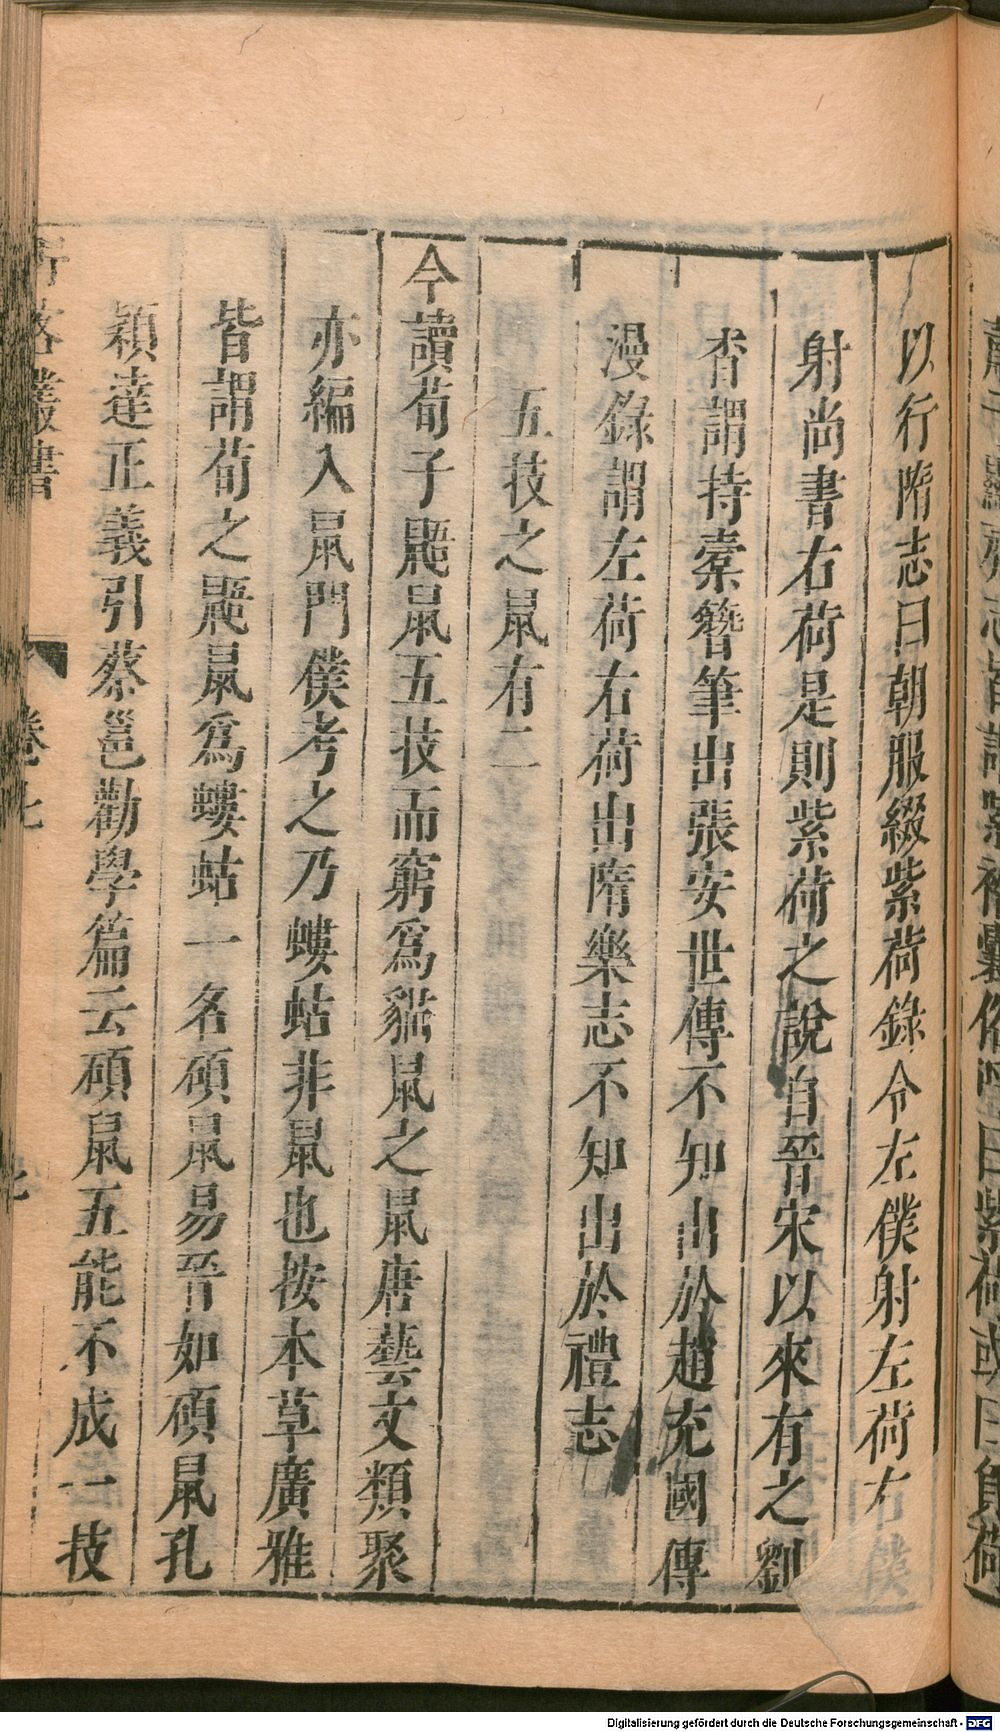 以行隋志曰朝服綴紫荷錄令左僕射左荷右僕
射尚書右荷是則紫荷之說自晉宋以來有之劉
杳謂持橐簪筆出張安世傳不知出於趙充國傳
漫錄謂左荷右荷出隋樂志不知出於禮志
五技之鼠有二
今讀荀子鼯鼠五技而窮爲貓鼠之鼠唐藝文類聚
亦編入鼠門僕考之乃螻蛄非鼠也按本草廣雅
皆謂荀之鼯鼠爲螻蛄一名碩鼠易晉如碩鼠孔
穎達正義引蔡邕勸學篇云碩鼠五能不成一技
卷七
Digitalisierung gefördert durch die Deutsche Forschungsgemeinschaft - DFG